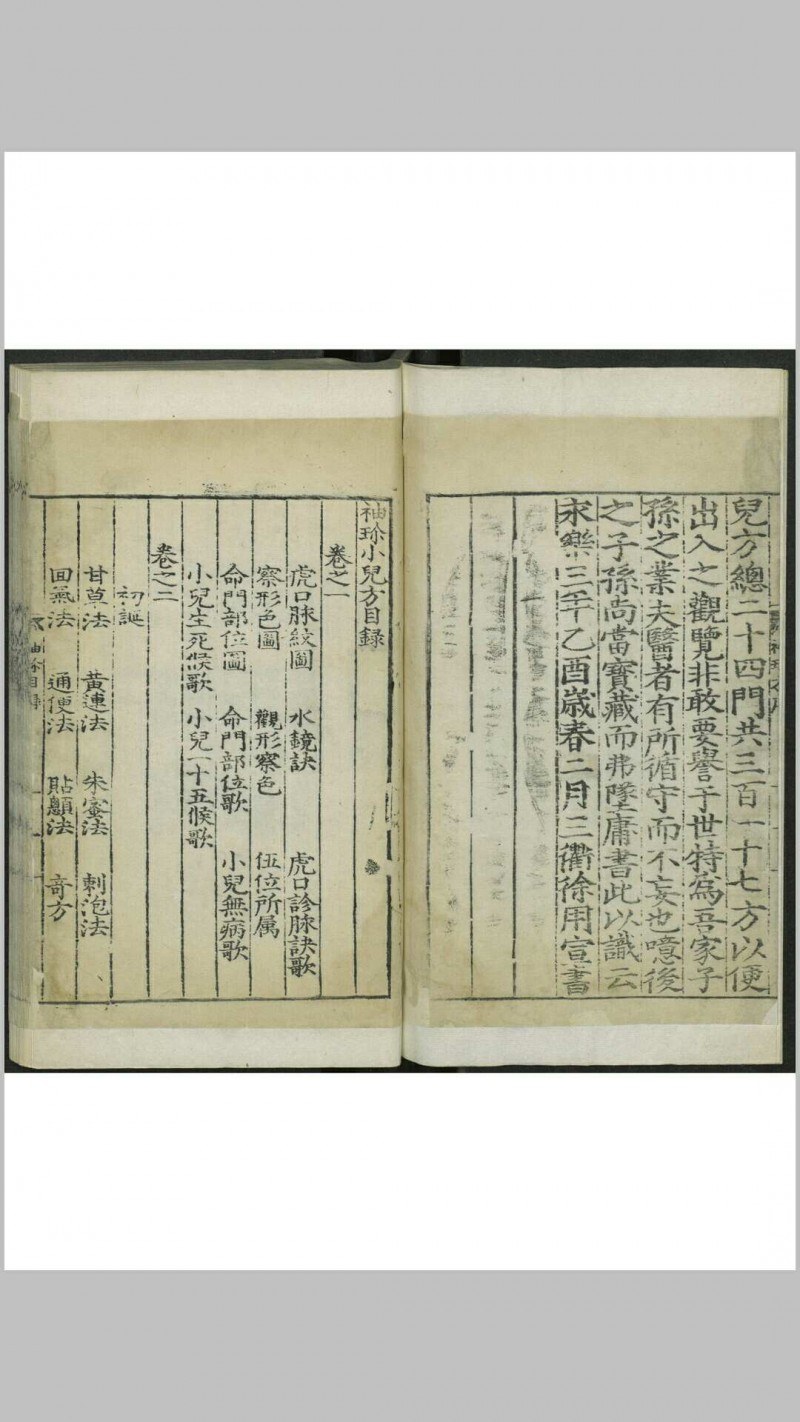 兒方總二十四門共三百一十七方以便
出入之觀覽非敢要譽于世特爲吾家子
孫之業夫醫者有所循守而不妄也噫後
之子孫尚當寳藏而弗墜庸書此以識云
永樂三年乙酉歲春二月三衢徐用宣書
袖珍小兒方目録
卷之一
虎口脉紋圖 水鏡訣 虎口診脉訣歌
察形色圖 觀形察色 伍位所属
命門部位圖 命門部位歌 小兒無病歌
小兒生死候歌 小兒一十五候歌
卷之二
初誕
甘草法 黄連法 朱蜜法 刺泡法
回氣法 通便法 貼顖法 奇方